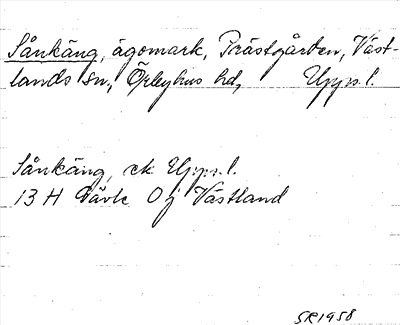 Sånkäng, ägomark, Prästgården, Väst-
lands sn, Örbyhus hd, Upps.l.
Sånkäng, ek Upps.l.
13 H Gävle 0 j Västland
SR1958